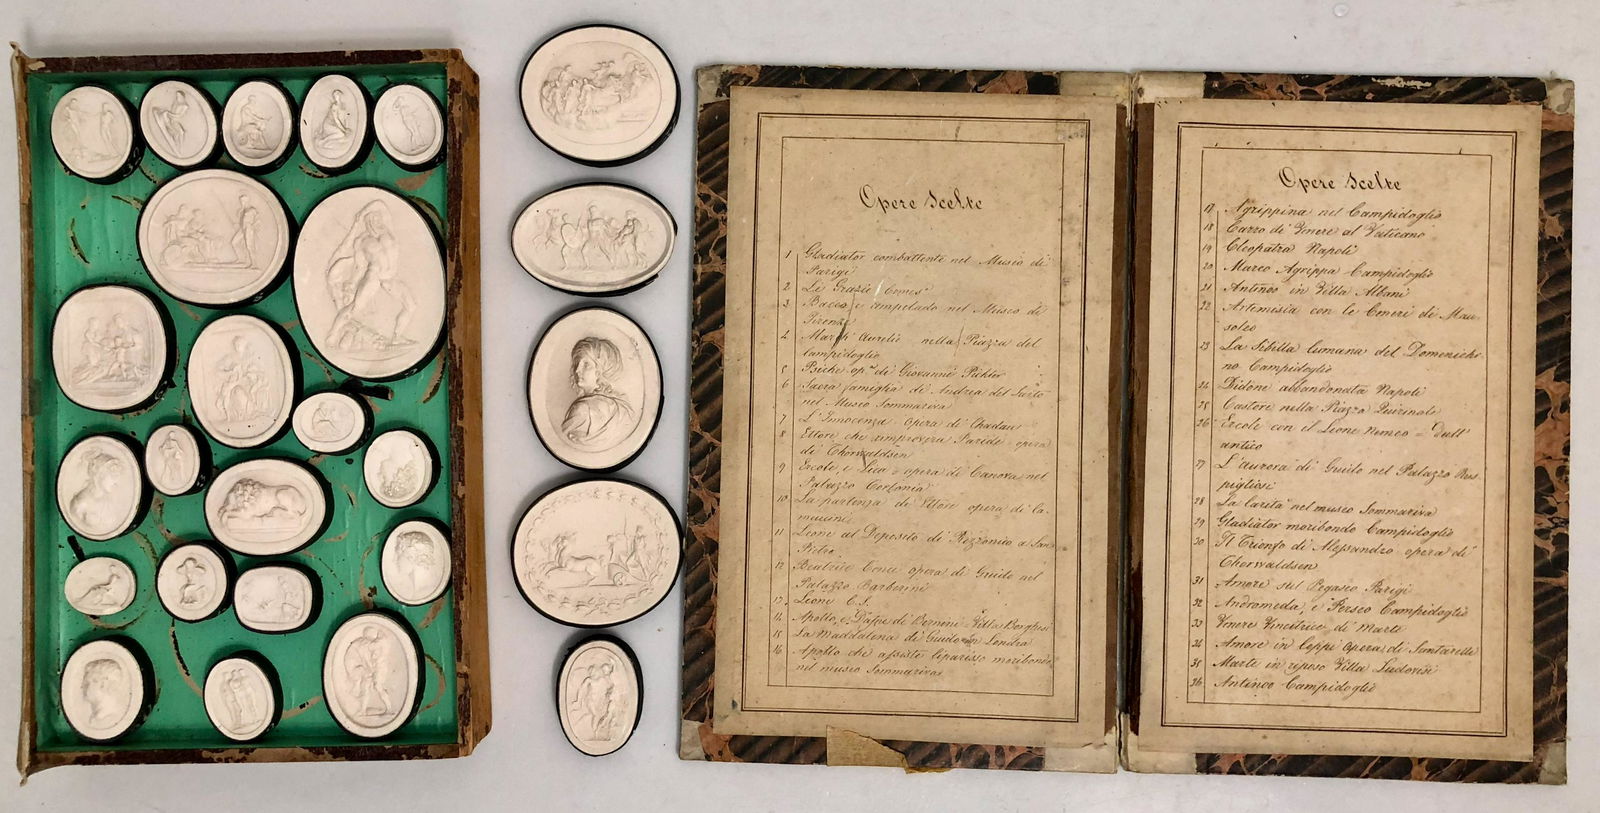 Opere Scelte
1 Gladiator combattente nel Museo di
Parigi
2 Le Grazie
3 Bacco e ampelado nel Museo di
Firenze
4 Aurelio nella Piazza del
Campidoglio
5 Psiche op.ª di Giovanni Pichler
6 Sacra famiglia di Andrea del Sarto
nel Museo Sommariva
7 L'Innocenza opera di
8 Ettore che rimprovera Paride opera
di Thorwaldsen
9 Ercole, e Lica = opera di Canova nel
Palazzo Torlonia
10 La partenza di Ettore opera di Ca-
muccini
11 Leone al Deposito di Rezzonico a San
Pietro
12 Beatrice Cenci opera di Guido nel
Palazzo Barberini
13 Leone C.S.
14 Apollo, e Dafne di Bernini Villa Borghesi
15 La Maddalena di Guido in Londra
16 Apollo che assiste Ciparisso moribondo
nel museo Sommariva
Opere Scelte
17 Agrippina nel Campidoglio
18 Carro di Venere al Vaticano
19 Cleopatra Napoli
20 Marco Agrippa Campidoglio
21 Antinoo in Villa Albani
22 Artemisia con le Ceneri di Mau-
soleo
23 La Sibilla Cumana del Domenichi-
no Campidoglio
24 Didone abbandonata Napoli
25 Castore nella Piazza Quirinale
26 Ercole con il Leone Nemeo = dall'
antico
27 L'aurora di Guido nel Palazzo Ros-
pigliosi
28 La Carità nel museo Sommariva
29 Gladiator moribondo Campidoglio
30 Il Trionfo di Alessandro opera di
Thorwaldsen
31 Amore sul Pegaseo Parigi
32 Andromeda, e Perseo Campidoglio
33 Venere Vincitrice di Marte
34 Amore in Ceppi opera di Santarelli
35 Marte in riposo Villa Ludovisi
36 Antinoo Campidoglio